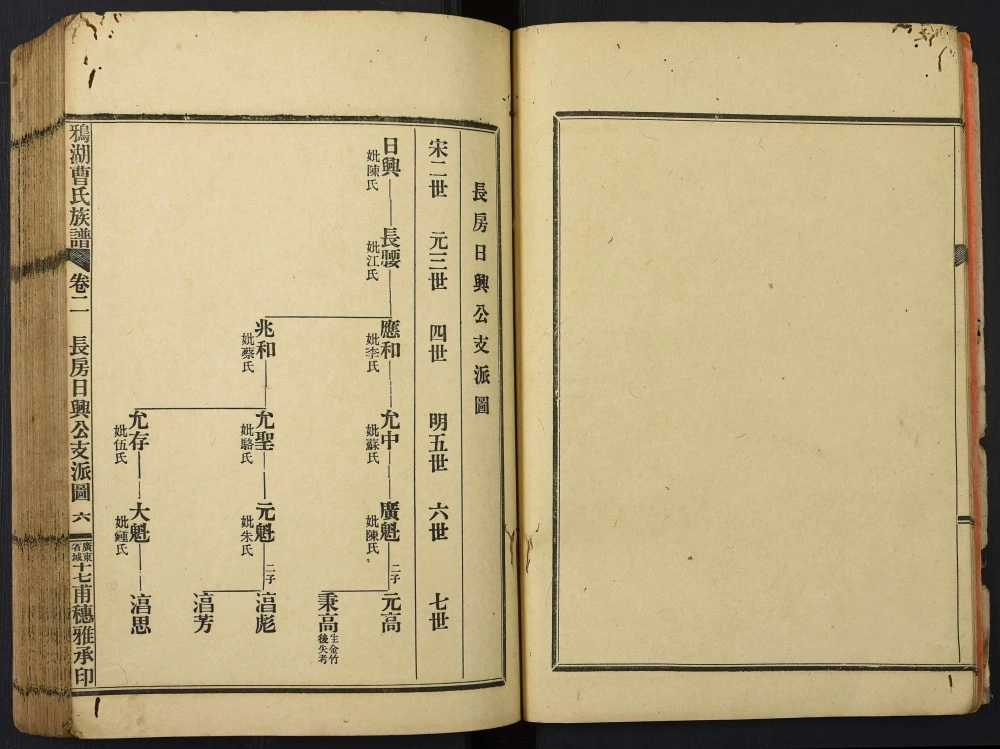 長房日興公支派圖
宋二世 元三世 四世 明五世 六世 七世
日興
妣陳氏
長腰
妣江氏
應和
妣李氏
允中
妣蘇氏
廣魁
妣陳氏
二子
元高
秉高
生金竹
後失考
兆和
妣蔡氏
允聖
妣駱氏
元魁
妣朱氏
二子
湇彪
湇芳
允存
妣伍氏
大魁
妣鍾氏
湇思
鴉湖曹氏族譜 卷二 長房日興公支派圖 六
廣東
省城
十七甫穗雅承印